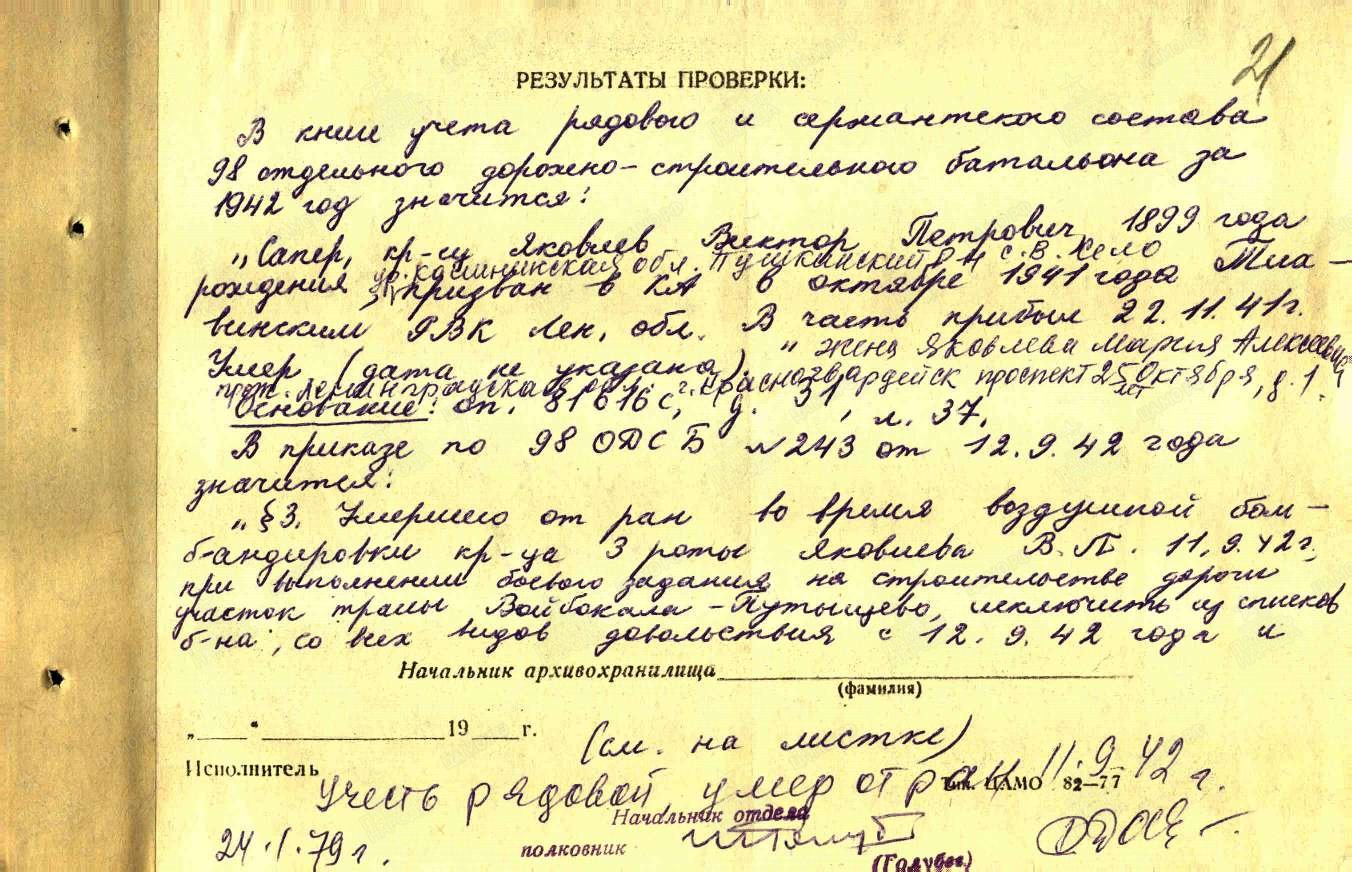 21
РЕЗУЛЬТАТЫ ПРОВЕРКИ:
В книге учета рядового и сержантского состава
98 отдельного дорожно-строительного батальона за
1942 год значится:
„Сапер, кр-ец Яковлев Виктор Петрович, 1899 года
ур. Калининская обл. Пушкинский р-н с. В. Село
рождения, призван в КА в октябре 1941 года Тих-
винским РВК Лен. обл. В часть прибыл 22.11.41г.
Умер (дата не указана)." жена Яковлева Мария Алексеевна
прож. Ленинградская обл. г. Красногвардейск проспект 25 Октября, д. 1.
Основание: оп. 81616с, д. 31, л. 37.
В приказе по 98 ОДСБ №243 от 12.9.42 года
значится:
„§3. Умершего от ран во время воздушной бом-
бандировки кр-ца 3 роты Яковлева В.П. 11.9.42г.
при выполнении боевого задания на строительстве дороги
участок трассы Войбокала-Путыщево, исключить из списков
б-на, со всех видов довольствия с 12.9.42 года и
Начальник архивохранилища
(фамилия)
„ " 19 г.
(см. на листке)
Исполнитель
Тип. ЦАМО 82—77
Учесть рядовой, умер от ран 11.9.42 г.
Начальник отдела
24.1.79 г.
полковник
(Голубев)